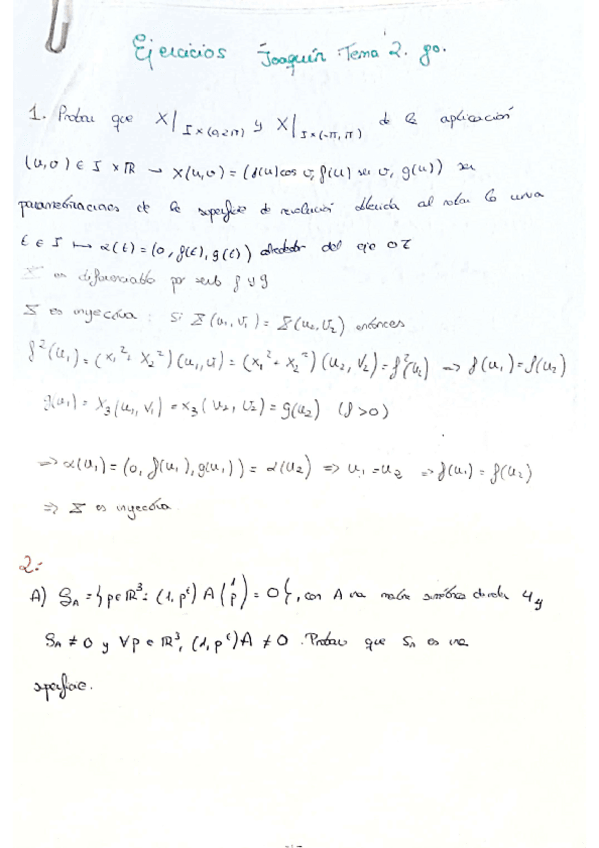 Ejercicios Joaquín Tema 2. go.
1. Probar que X|I×(0,2π) y X|I×(-π,π) de la aplicación
(u,v) ∈ I × ℝ → X(u,v) = (f(u)cos v, f(u) sen v, g(u)) son
parametrizaciones de la superficie de revolución obtenida al rotar la curva
t ∈ I ↦ α(t) = (0, f(t), g(t)) alrededor del eje OZ
X es diferenciable por serlo f y g
X es inyectiva: Si X(u₁,v₁) = X(u₂,v₂) entonces
f²(u₁) = (x₁² + x₂²)(u₁,v₁) = (x₁² + x₂²)(u₂,v₂) = f²(u₂) ⇒ f(u₁) = f(u₂)
g(u₁) = x₃(u₁,v₁) = x₃(u₂,v₂) = g(u₂) (f>0)
⇒ α(u₁) = (0, f(u₁), g(u₁)) = α(u₂) ⇒ u₁ = u₂ ⇒ f(u₁) = f(u₂)
⇒ X es inyectiva.
2:
A) S_A = {p∈ℝ³: (1,pᵗ) A (1 p) = 0}, con A una matriz simétrica de orden 4 y
S_A ≠ 0 y ∀p ∈ ℝ³, (1,pᵗ)A ≠ 0. Probar que S_A es una
superficie.